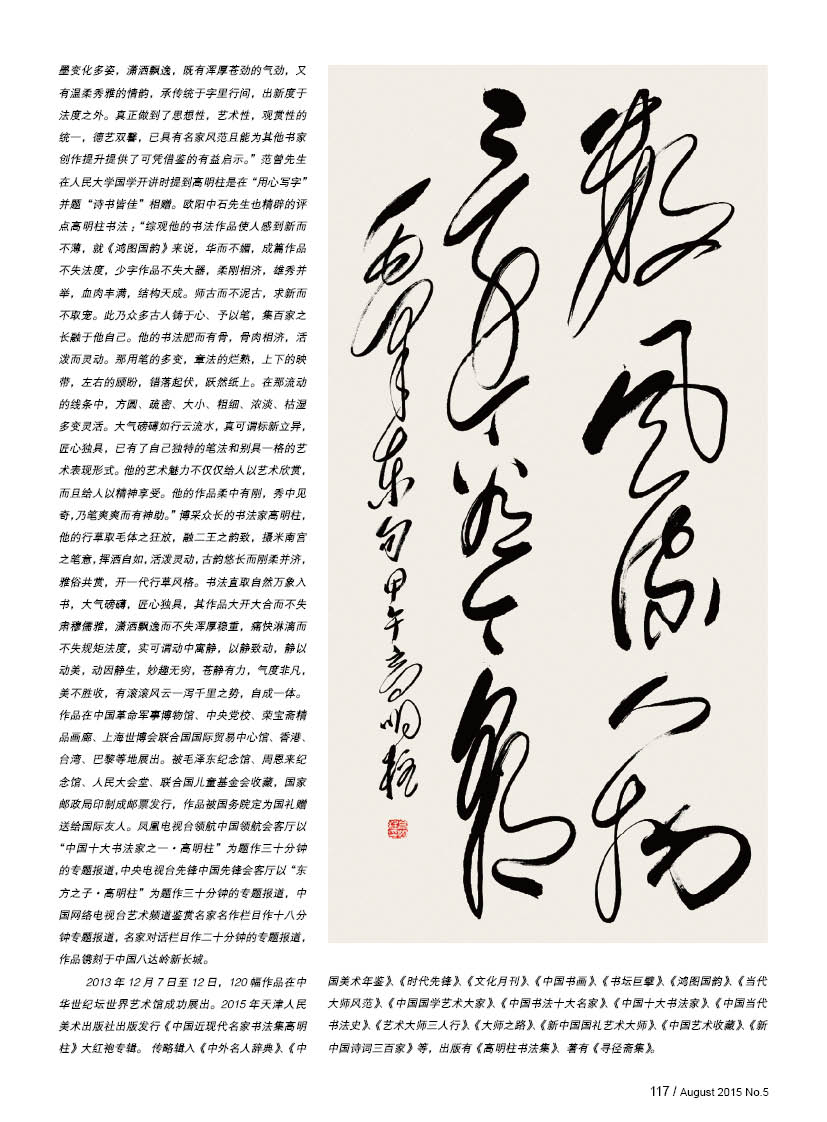 墨变化多姿，潇洒飘逸，既有浑厚苍劲的气劲，又
有温柔秀雅的情韵，承传统于字里行间，出新度于
法度之外。真正做到了思想性，艺术性，观赏性的
统一，德艺双馨，已具有名家风范且能为其他书家
创作提升提供了可凭借鉴的有益启示。”范曾先生
在人民大学国学开讲时提到高明柱是在“用心写字”
并题“诗书皆佳”相赠。欧阳中石先生也精辟的评
点高明柱书法：“综观他的书法作品使人感到新而
不薄，就《鸿图国韵》来说，华而不媚，成篇作品
不失法度，少字作品不失大器，柔刚相济，雄秀并
举，血肉丰满，结构天成。师古而不泥古，求新而
不取宠。此乃众多古人铸于心、予以笔，集百家之
长融于他自己。他的书法肥而有骨，骨肉相济，活
泼而灵动。那用笔的多变，章法的烂熟，上下的映
带，左右的顾盼，错落起伏，跃然纸上。在那流动
的线条中，方圆、疏密、大小、粗细、浓淡、枯湿
多变灵活。大气磅礴如行云流水，真可谓标新立异，
匠心独具，已有了自己独特的笔法和别具一格的艺
术表现形式。他的艺术魅力不仅仅给人以艺术欣赏，
而且给人以精神享受。他的作品柔中有刚，秀中见
奇，乃笔爽爽而有神助。”博采众长的书法家高明柱，
他的行草取毛体之狂放，融二王之韵致，摄米南宫
之笔意，挥洒自如，活泼灵动，古韵悠长而刚柔并济，
雅俗共赏，开一代行草风格。书法直取自然万象入
书，大气磅礴，匠心独具，其作品大开大合而不失
肃穆儒雅，潇洒飘逸而不失浑厚稳重，痛快淋漓而
不失规矩法度，实可谓动中寓静，以静致动，静以
动美，动因静生，妙趣无穷，苍静有力，气度非凡，
美不胜收，有滚滚风云一泻千里之势，自成一体。
作品在中国革命军事博物馆、中央党校、荣宝斋精
品画廊、上海世博会联合国国际贸易中心馆、香港、
台湾、巴黎等地展出。被毛泽东纪念馆、周恩来纪
念馆、人民大会堂、联合国儿童基金会收藏，国家
邮政局印制成邮票发行，作品被国务院定为国礼赠
送给国际友人。凤凰电视台领航中国领航会客厅以
“中国十大书法家之一·高明柱”为题作三十分钟
的专题报道，中央电视台先锋中国先锋会客厅以“东
方之子·高明柱”为题作三十分钟的专题报道，中
国网络电视台艺术频道鉴赏名家名作栏目作十八分
钟专题报道，名家对话栏目作二十分钟的专题报道，
作品镌刻于中国八达岭新长城。
2013年12月7日至12日，120幅作品在中
华世纪坛世界艺术馆成功展出。2015年天津人民
美术出版社出版发行《中国近现代名家书法集高明
柱》大红袍专辑。 传略辑入《中外名人辞典》、《中
数风流人物
东句甲午高明柱
国美术年鉴》、《时代先锋》、《文化月刊》、《中国书画》、《书坛巨擘》、《鸿图国韵》、《当代
大师风范》、《中国国学艺术大家》、《中国书法十大名家》、《中国十大书法家》、《中国当代
书法史》、《艺术大师三人行》、《大师之路》、《新中国国礼艺术大师》、《中国艺术收藏》、《新
中国诗词三百家》等，出版有《高明柱书法集》、著有《寻径斋集》。
117 / August 2015 No.5